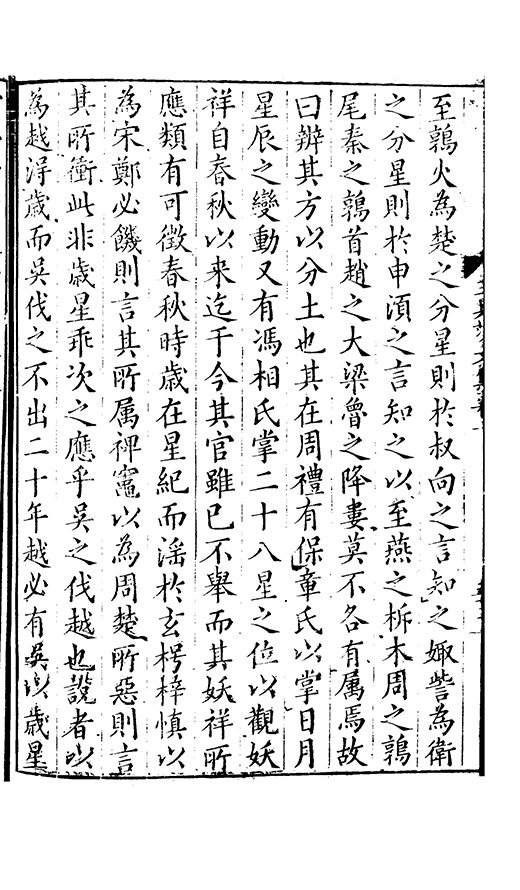 至鶉火為楚之分星則於叔向之言知之娵訾為衛
之分星則於申湏之言知之以至燕之柝木周之鶉
尾秦之鶉首趙之大梁魯之降婁莫不各有属焉故
曰辨其方以分土也其在周禮有保章氏以掌日月
星辰之變動又有馮相氏掌二十八星之位以觀妖
祥自春秋以来迄于今其官雖已不舉而其妖祥所
應類有可徴春秋時歳在星紀而滛於玄枵梓慎以
為宋鄭必饑則言其所属裨竈以為周楚所惡則言
其所衝此非歳星乖次之應乎吳之伐越也說者以
為越得歳而吳伐之不出二十年越必有吳以歳星